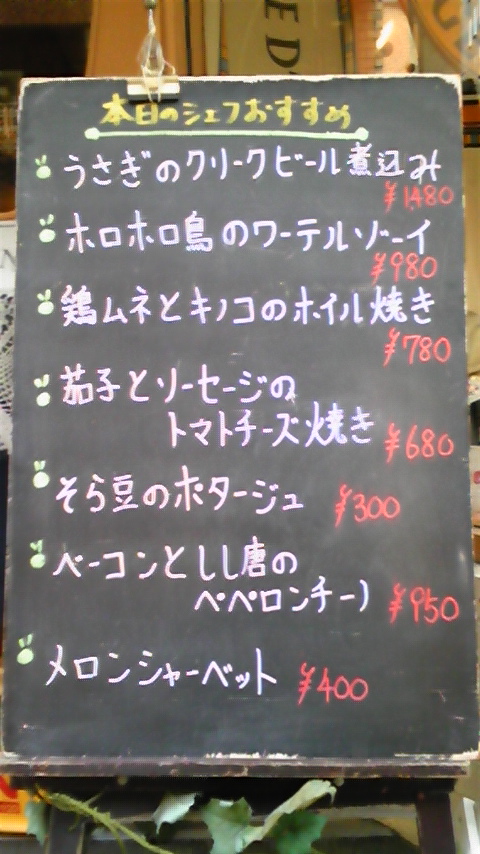 本日のシェフおすすめ
うさぎのクリークビール煮込み
¥1480
ホロホロ鳥のワーテルゾーイ
¥980
鶏ムネとキノコのホイル焼き
¥780
茄子とソーセージの
トマトチーズ焼き
¥680
そら豆のポタージュ ¥300
ベーコンとしし唐の
ペペロンチーノ ¥950
メロンシャーベット ¥400